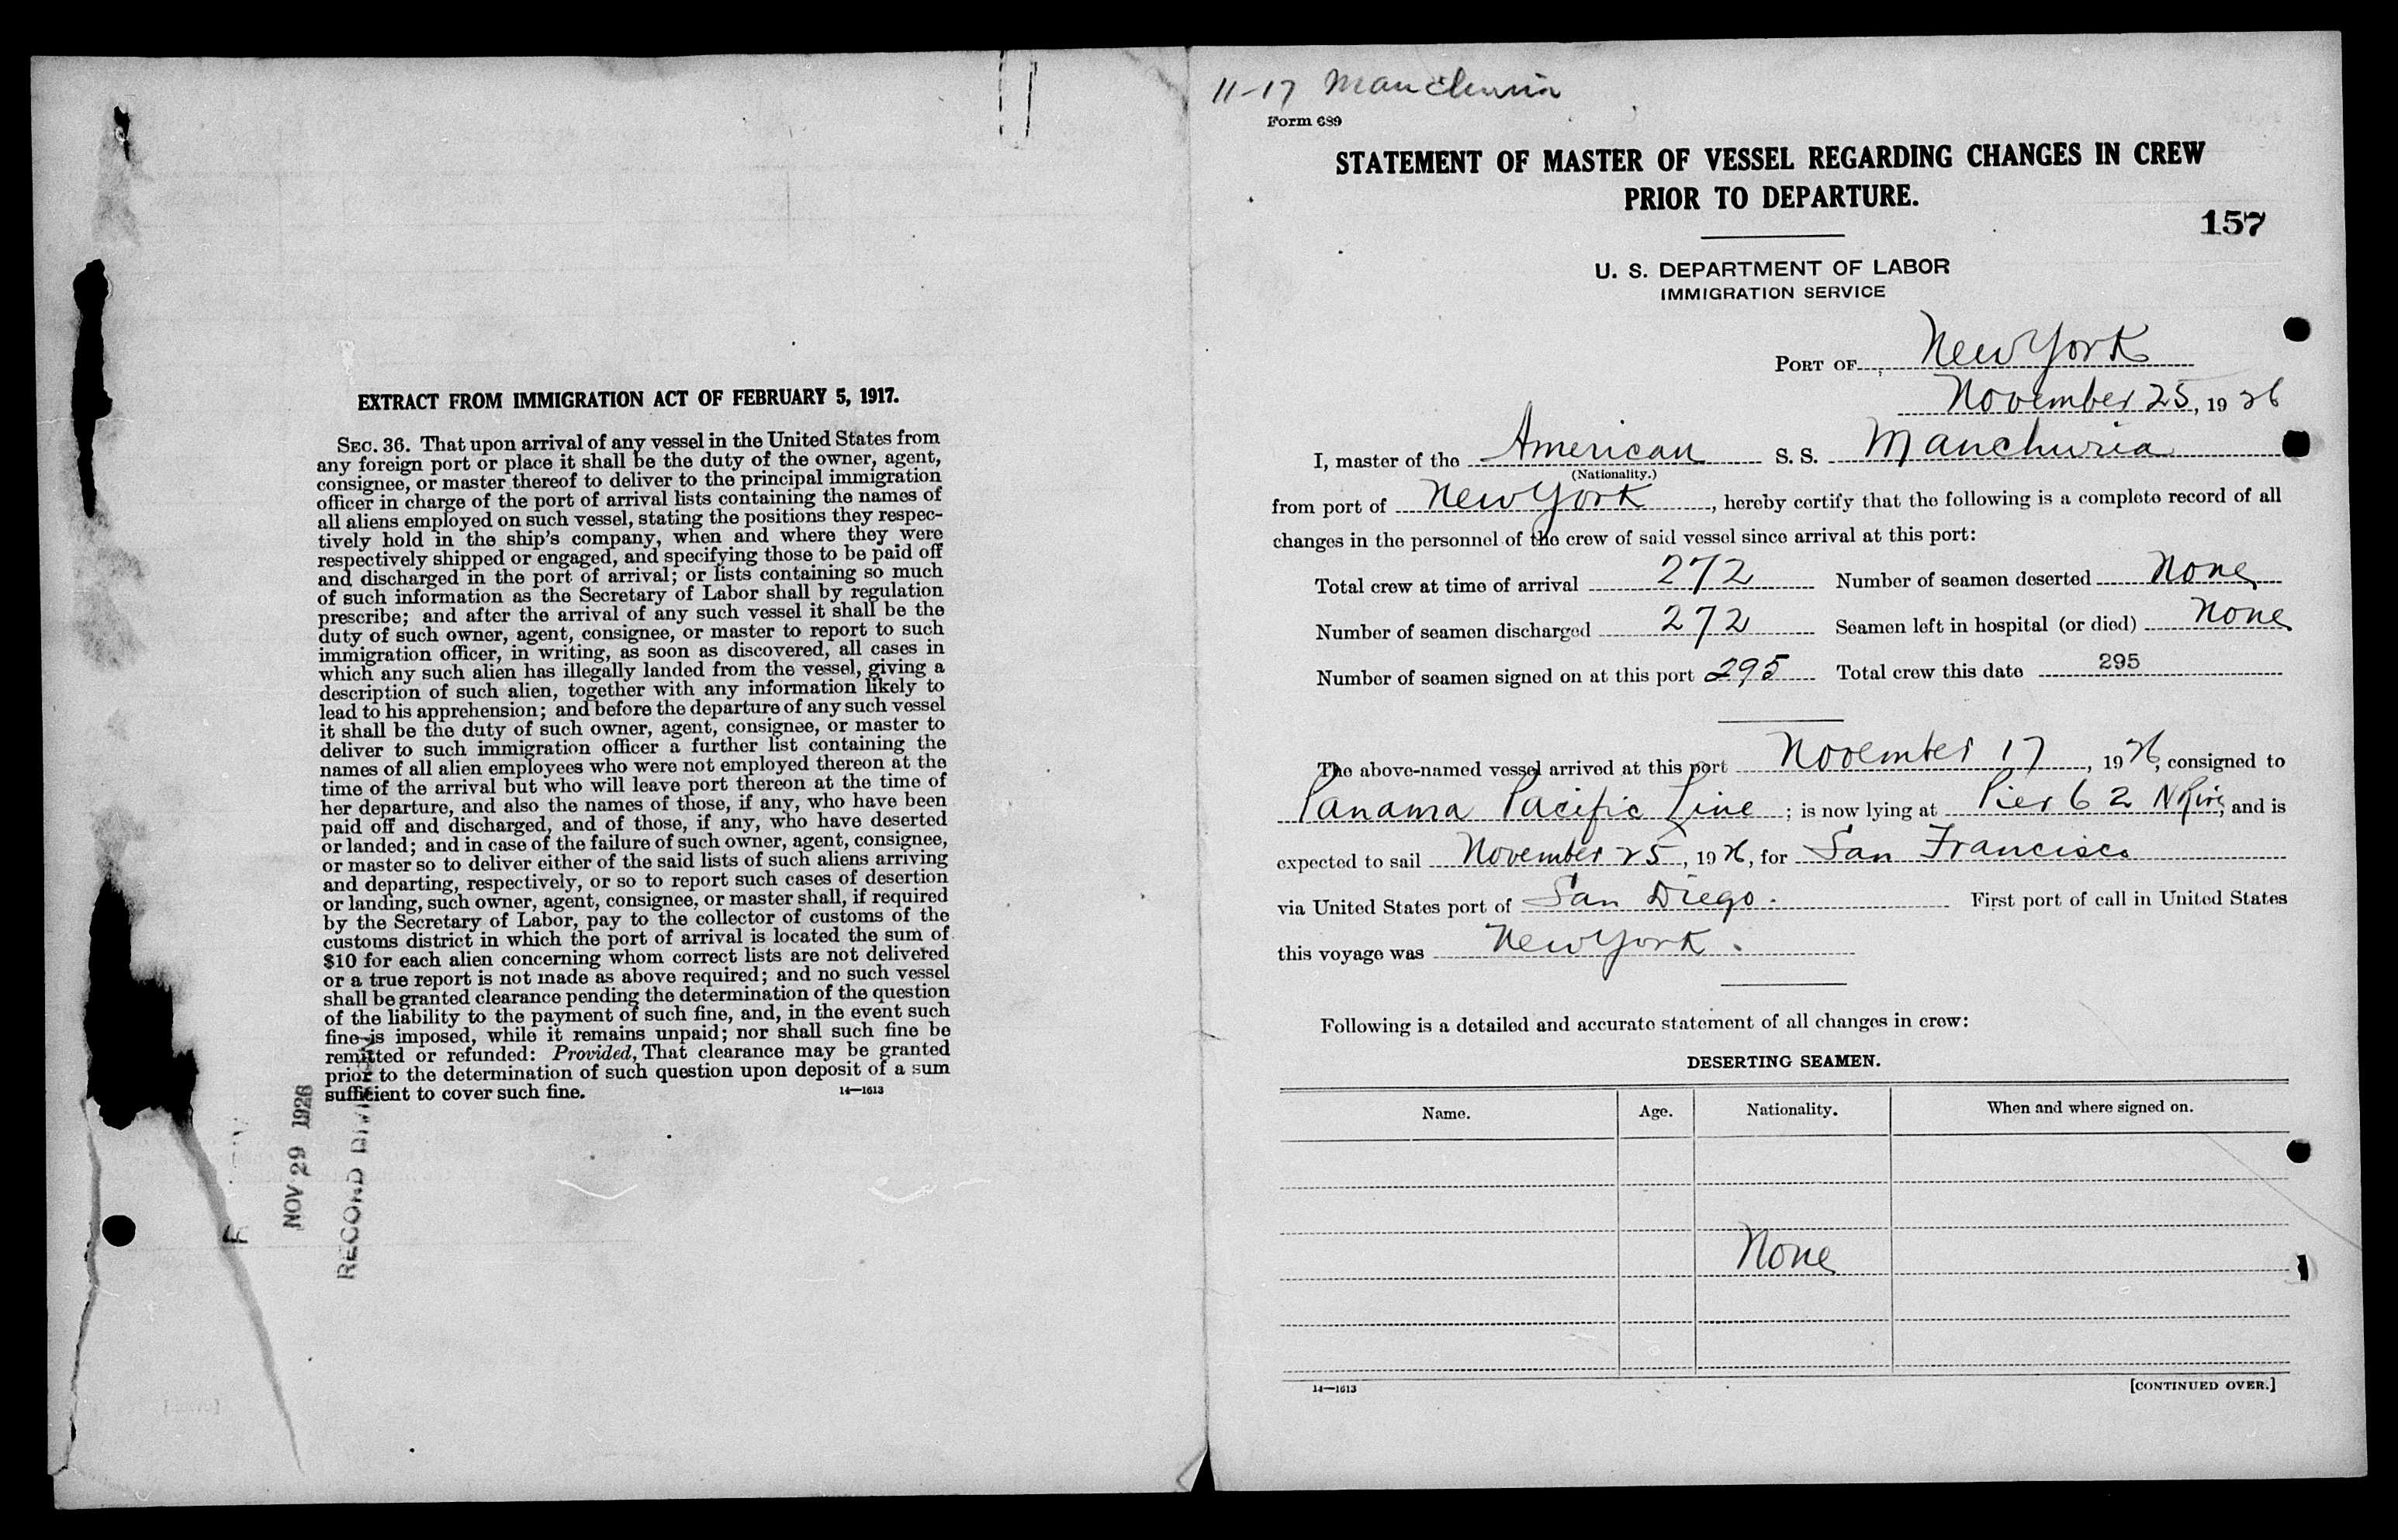 EXTRACT FROM IMMIGRATION ACT OF FEBRUARY 5, 1917.
SEC. 36. That upon arrival of any vessel in the United States from
any foreign port or place it shall be the duty of the owner, agent,
consignee, or master thereof to deliver to the principal immigration
officer in charge of the port of arrival lists containing the names of
all aliens employed on such vessel, stating the positions they respec-
tively hold in the ship's company, when and where they were
respectively shipped or engaged, and specifying those to be paid off
and discharged in the port of arrival; or lists containing so much
of such information as the Secretary of Labor shall by regulation
prescribe; and after the arrival of any such vessel it shall be the
duty of such owner, agent, consignee, or master to report to such
immigration officer, in writing, as soon as discovered, all cases in
which any such alien has illegally landed from the vessel, giving a
description of such alien, together with any information likely to
lead to his apprehension; and before the departure of any such vessel
it shall be the duty of such owner, agent, consignee, or master to
deliver to such immigration officer a further list containing the
names of all alien employees who were not employed thereon at the
time of the arrival but who will leave port thereon at the time of
her departure, and also the names of those, if any, who have been
paid off and discharged, and of those, if any, who have deserted
or landed; and in case of the failure of such owner, agent, consignee,
or master so to deliver either of the said lists of such aliens arriving
and departing, respectively, or so to report such cases of desertion
or landing, such owner, agent, consignee, or master shall, if required
by the Secretary of Labor, pay to the collector of customs of the
customs district in which the port of arrival is located the sum of
$10 for each alien concerning whom correct lists are not delivered
or a true report is not made as above required; and no such vessel
shall be granted clearance pending the determination of the question
of the liability to the payment of such fine, and, in the event such
fine is imposed, while it remains unpaid; nor shall such fine be
remitted or refunded: Provided, That clearance may be granted
prior to the determination of such question upon deposit of a sum
sufficient to cover such fine.
14—1613
NOV 29 1926
RECORD DIVISION
11-17 Manchuria
Form 689
STATEMENT OF MASTER OF VESSEL REGARDING CHANGES IN CREW
PRIOR TO DEPARTURE.
157
U. S. DEPARTMENT OF LABOR
IMMIGRATION SERVICE
PORT OF New York
November 25, 1926
I, master of the American S. S. Manchuria
(Nationality.)
from port of New York, hereby certify that the following is a complete record of all
changes in the personnel of the crew of said vessel since arrival at this port:
Total crew at time of arrival 272 Number of seamen deserted None
Number of seamen discharged 272 Seamen left in hospital (or died) None
Number of seamen signed on at this port 295 Total crew this date 295
The above-named vessel arrived at this port November 17, 1926, consigned to
Panama Pacific Line; is now lying at Pier 62 N River, and is
expected to sail November 25, 1926, for San Francisco
via United States port of San Diego. First port of call in United States
this voyage was New York.
Following is a detailed and accurate statement of all changes in crew:
DESERTING SEAMEN.
Name. Age. Nationality. When and where signed on.
None
14—1613
[CONTINUED OVER.]